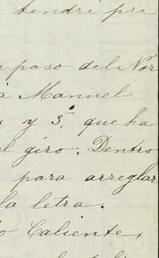 tendré pre
paso del Nor
Manuel
y 5, que ha
el giro. Dentro
para arreglar
la letra.
Caliente,